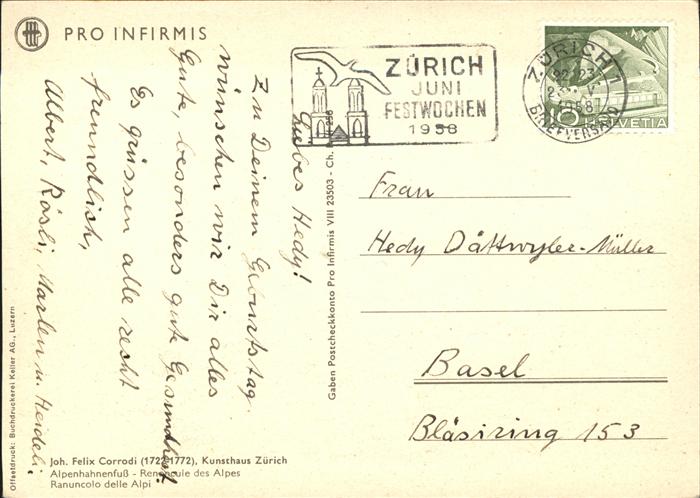 PRO INFIRMIS
Liebes Hedy!
Zu Deinem Geburtstag
wünschen wir Dir alles
Gute, besonders gute Gesundheit.
Es grüssen alle recht
freundlich,
Albert, Rösli, Marlen u. Heideli
Joh. Felix Corrodi (1722-1772), Kunsthaus Zürich
Alpenhahnenfuß - Renoncule des Alpes
Ranuncolo delle Alpi
Offsetdruck: Buchdruckerei Keller AG., Luzern
Gaben Postcheckkonto Pro Infirmis VIII 23503 - Ch.
ZÜRICH
JUNI
FESTWOCHEN
1958
ZÜRICH
1958
BRIEFVERSAND
10
HELVETIA
Frau
Hedy Dättwyler-Müller
Basel
Bläsiring 153